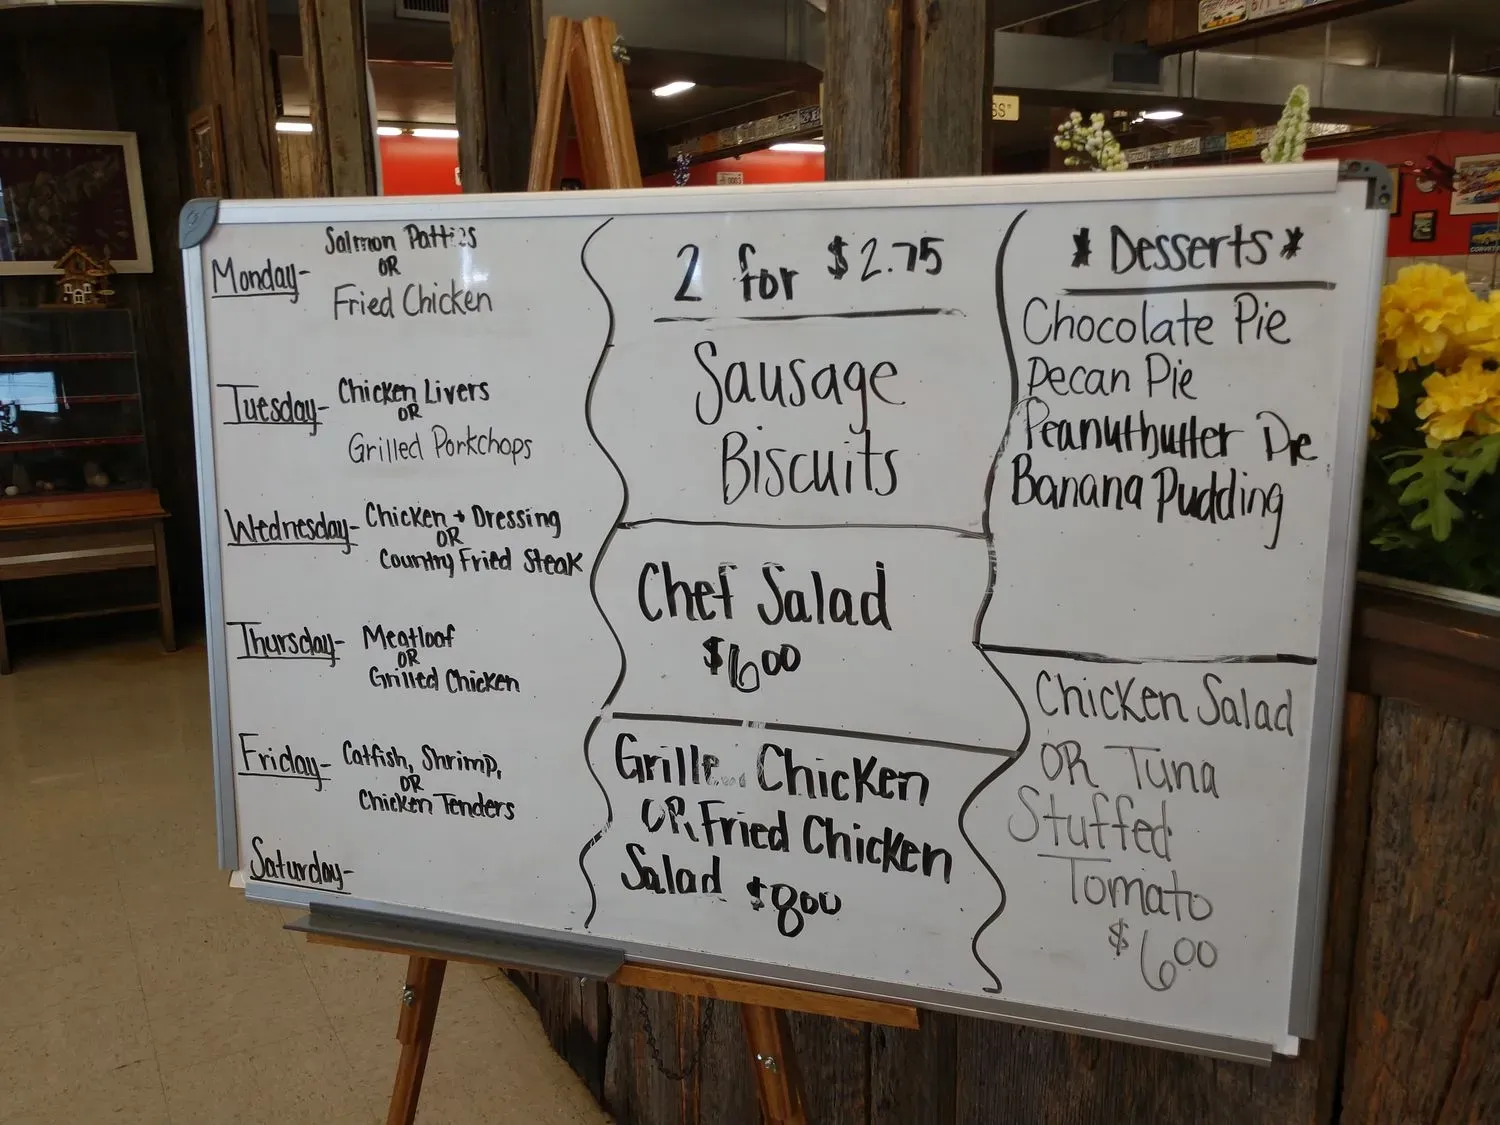 Monday-
Salmon Patties
OR
Fried Chicken
Tuesday-
Chicken Livers
OR
Grilled Porkchops
Wednesday-
Chicken + Dressing
OR
Country Fried Steak
Thursday-
Meatloaf
OR
Grilled Chicken
Friday-
Catfish, Shrimp,
OR
Chicken Tenders
Saturday-
2 for $2.75
Sausage
Biscuits
Chef Salad
$6.00
Grille Chicken
OR Fried Chicken
Salad $8.00
* Desserts *
Chocolate Pie
Pecan Pie
Peanutbutter Pie
Banana Pudding
Chicken Salad
OR Tuna
Stuffed
Tomato
$6.00